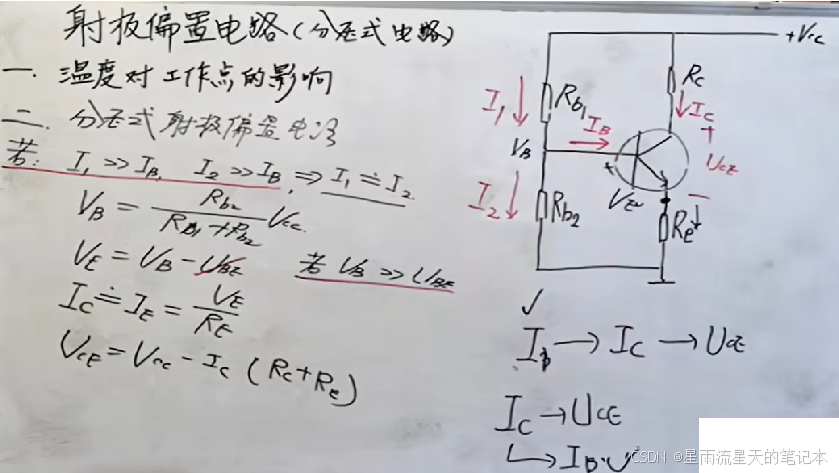 射极偏置电路(分压式电路)
一. 温度对工作点的影响
二. 分压式射极偏置电路
若: I₁ >> I_B, I₂ >> I_B, ⇒ I₁ ≐ I₂
V_B = R_b₂ / (R_b₁ + R_b₂) V_CC
V_E = V_B - U_BE 若 V_B >> U_BE
I_C ≐ I_E = V_E / R_E
U_CE = V_CC - I_C (R_C + R_E)
+V_CC
I₁
R_b₁
R_C
I_C
I_B
V_B
+
U_CE
-
I₂
R_b₂
R_E
✓
I_B → I_C → U_CE
I_C → U_CE
↳ I_B ✓
CSDN @星雨流星天的笔记本